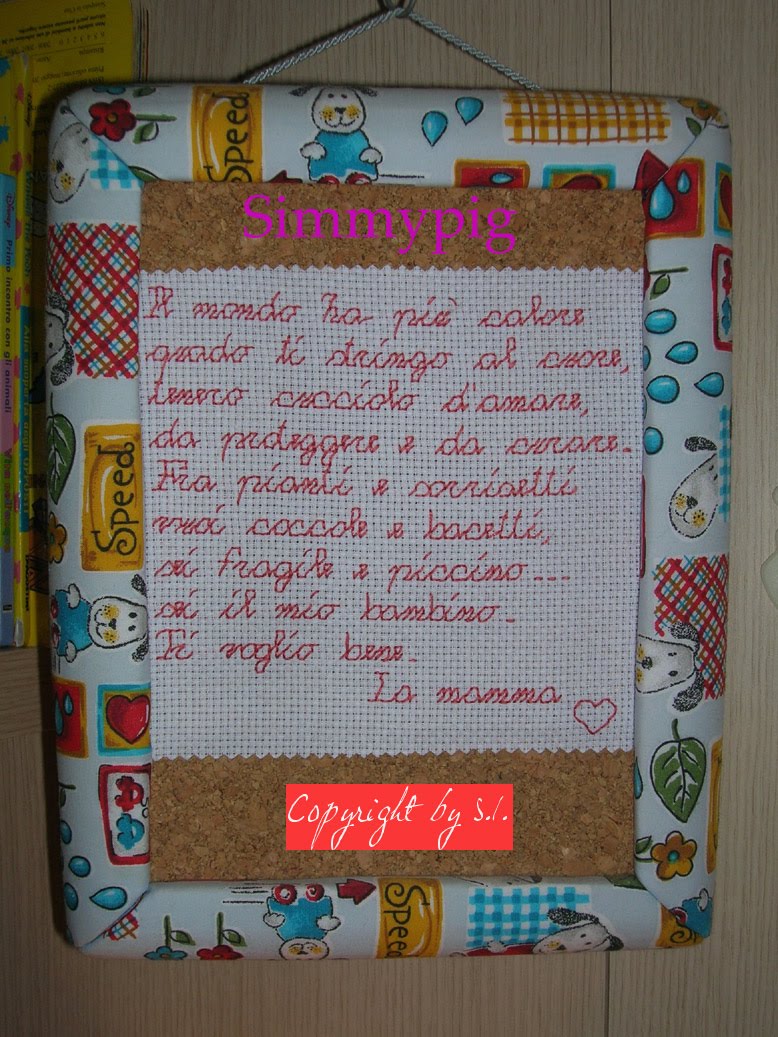 Speed
Simmypig
Il mondo ha più calore
quado ti stringo al cuore,
tenero cucciolo d'amore,
da proteggere e da curare.
Fra pianti e sorrisetti
vuoi coccole e bacetti,
sei fragile e piccino...
sei il mio bambino.
Ti voglio bene.
La mamma
Speed
Copyright by S.I.
Speed
Disney
Primo incontro con gli animali